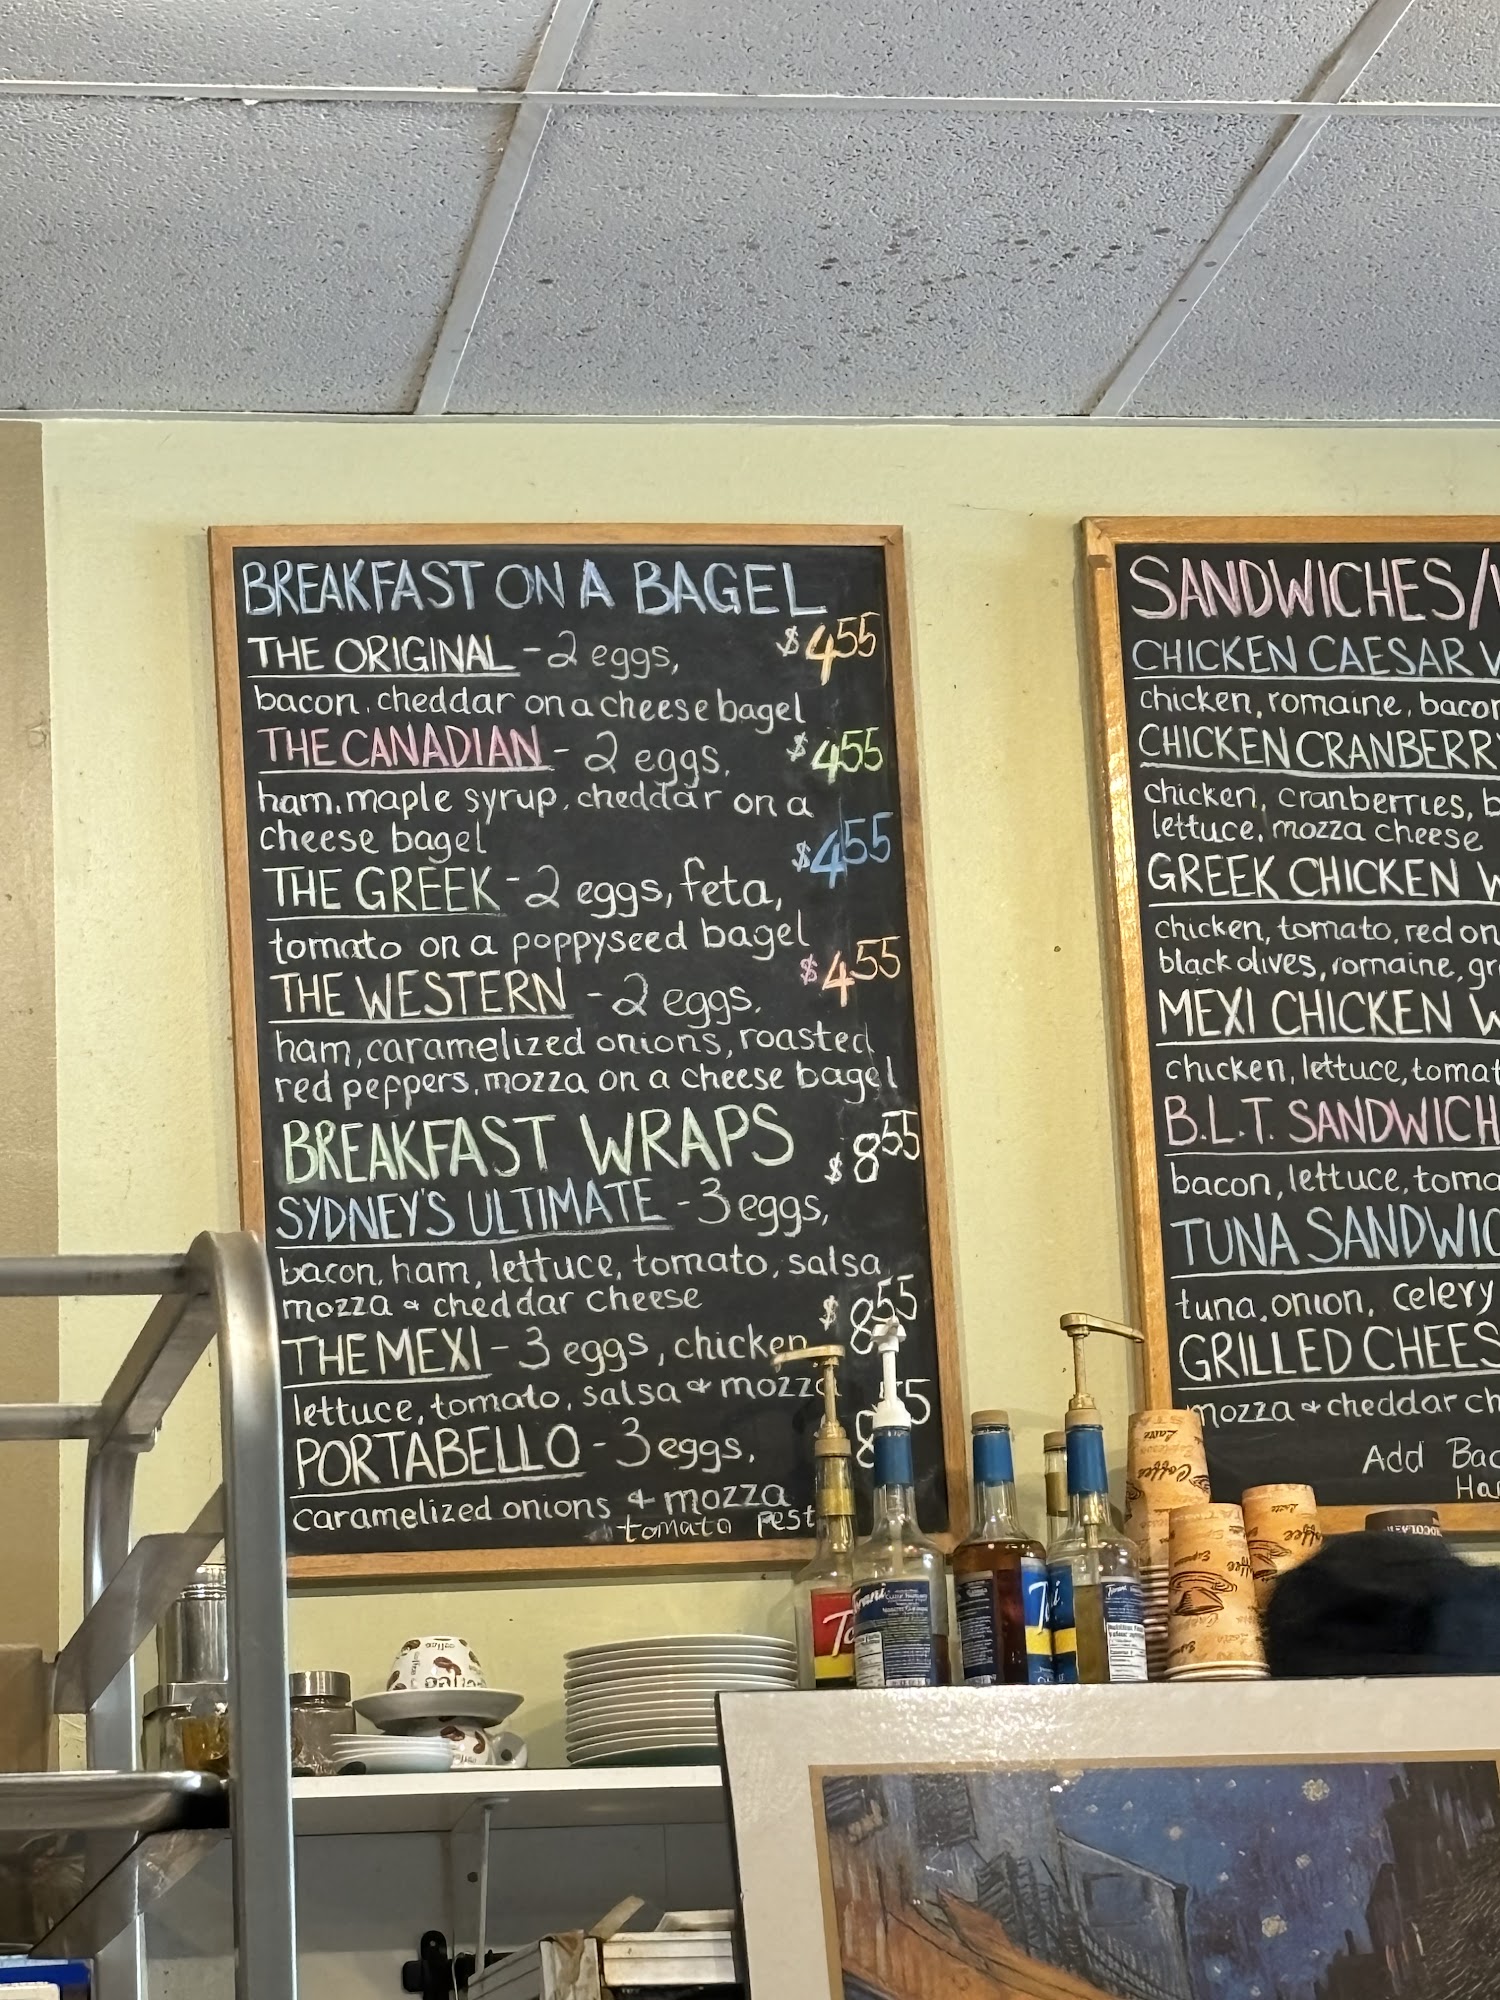 BREAKFAST ON A BAGEL
THE ORIGINAL - 2 eggs, $4.55
bacon, cheddar on a cheese bagel
THE CANADIAN - 2 eggs, $4.55
ham, maple syrup, cheddar on a
cheese bagel
THE GREEK - 2 eggs, feta, $4.55
tomato on a poppyseed bagel
THE WESTERN - 2 eggs, $4.55
ham, caramelized onions, roasted
red peppers, mozza on a cheese bagel
BREAKFAST WRAPS
SYDNEY'S ULTIMATE - 3 eggs, $8.55
bacon, ham, lettuce, tomato, salsa
mozza & cheddar cheese
THE MEXI - 3 eggs, chicken, $8.55
lettuce, tomato, salsa & mozza
PORTABELLO - 3 eggs,
caramelized onions & mozza
tomato pest
SANDWICHES/
CHICKEN CAESAR
chicken, romaine, bacon
CHICKEN CRANBERRY
chicken, cranberries,
lettuce, mozza cheese
GREEK CHICKEN
chicken, tomato, red on
black olives, romaine,
MEXI CHICKEN
chicken, lettuce, tomat
B.L.T. SANDWICH
bacon, lettuce, toma
TUNA SANDWIC
tuna, onion, celery
GRILLED CHEES
mozza & cheddar ch
Add Bac
Ha
Torani
coffee